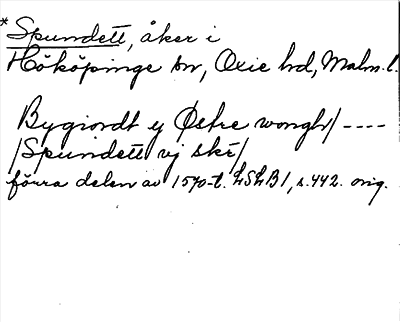 *Spundett, åker i
Hököpinge sn, Oxie hd, Malm. l.
Bygiordt y Østre wongh/ ----
/Spundett vj skè/
förra delen av 1570-t. LSLB1, s. 442. orig.